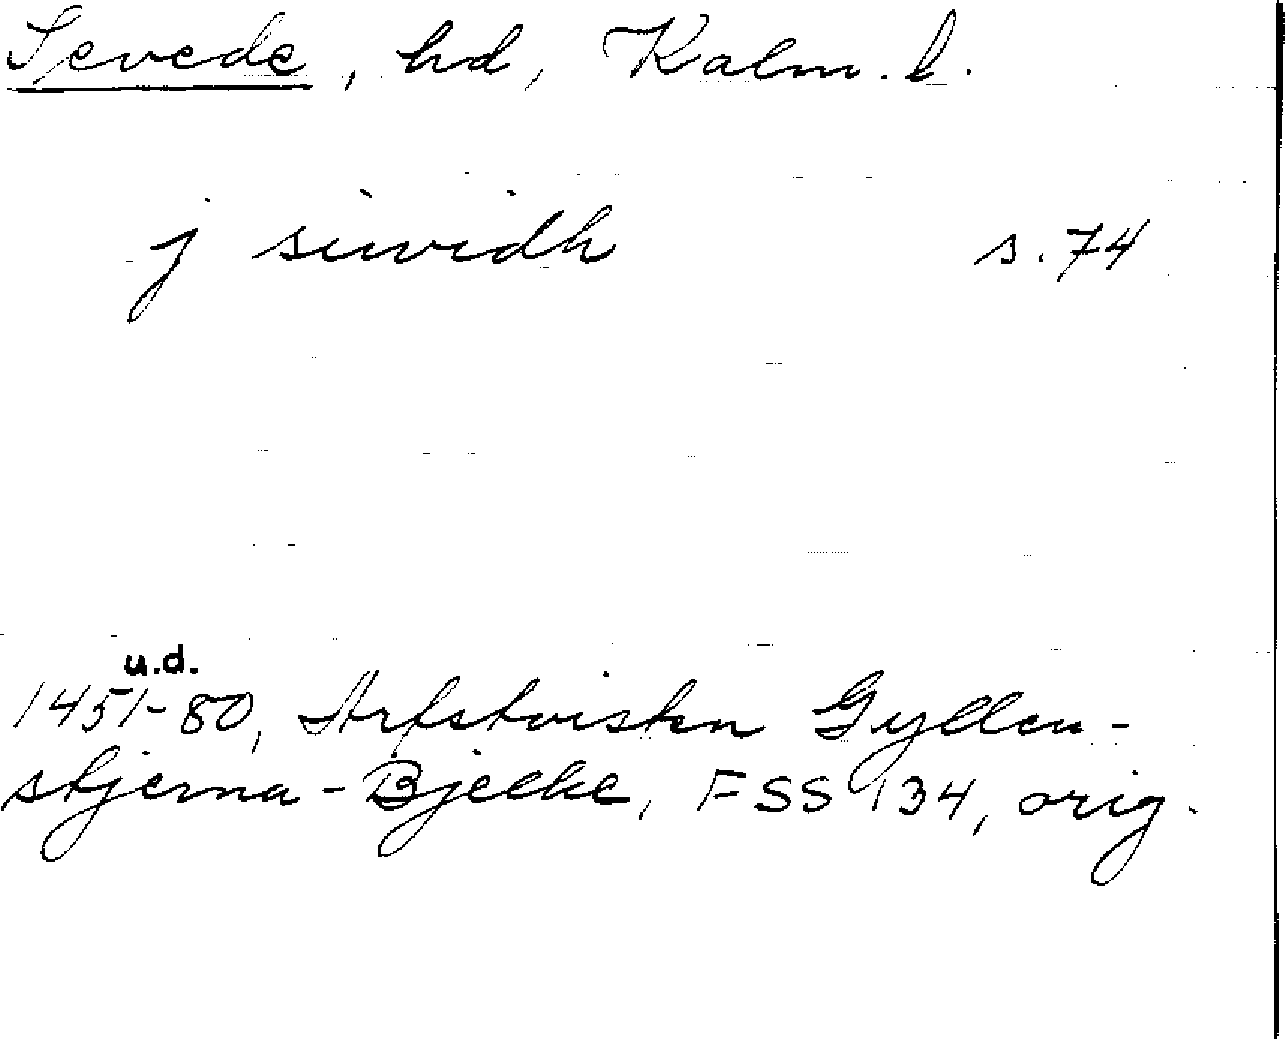 Sevede, hd, Kalm. l.
j siwidh s. 74
u.d.
1451-80, Arfstvisten Gyllen-
stjerna-Bjelke, FSS 134, orig.